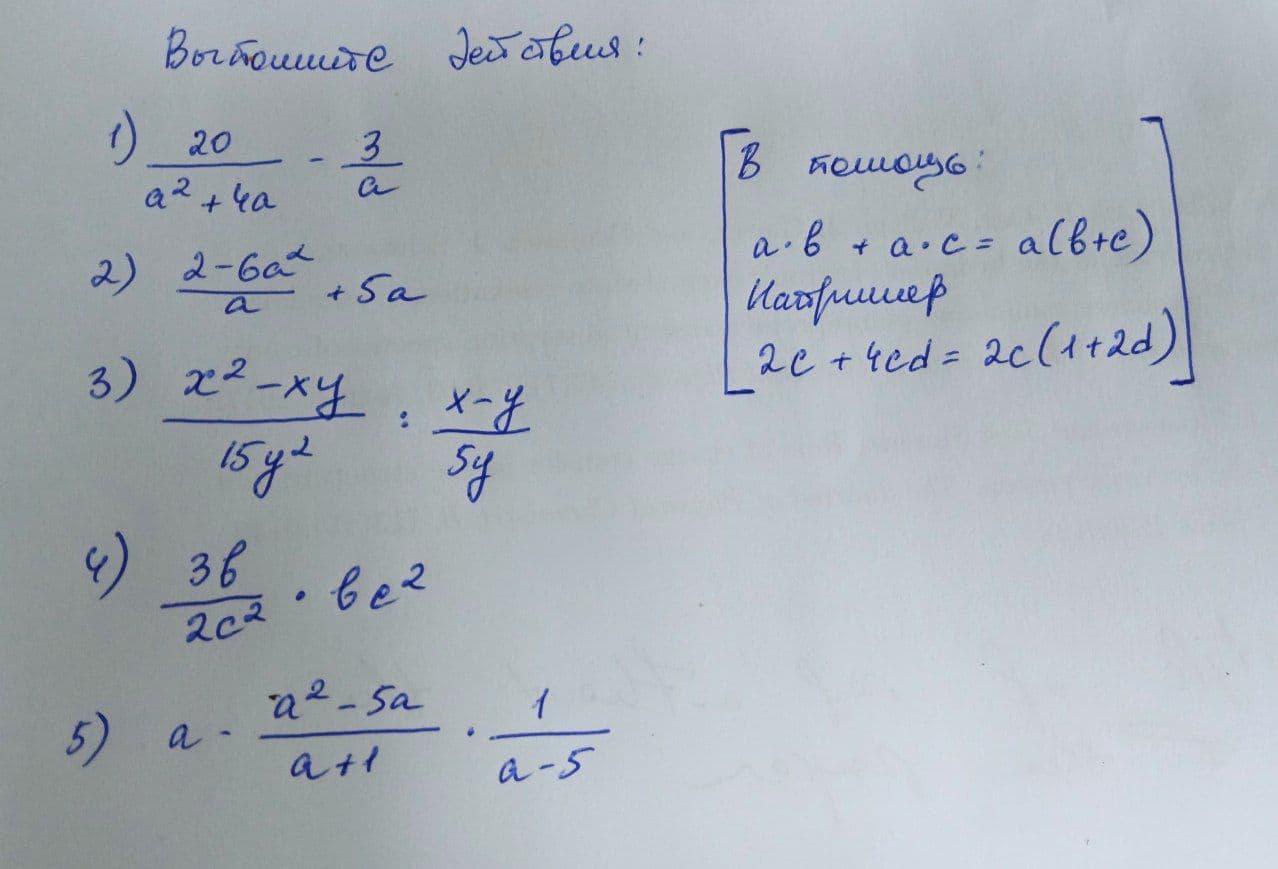 Выполните действия:
1) 20/(a² + 4a) - 3/a
2) (2-6a²)/a + 5a
3) (x² - xy)/(15y²) : (x-y)/(5y)
4) 3b/(2c²) · bc²
5) a - (a² - 5a)/(a+1) · 1/(a-5)
[В помощь:
a·b + a·c = a(b+c)
Например
2c + 4cd = 2c(1+2d)]